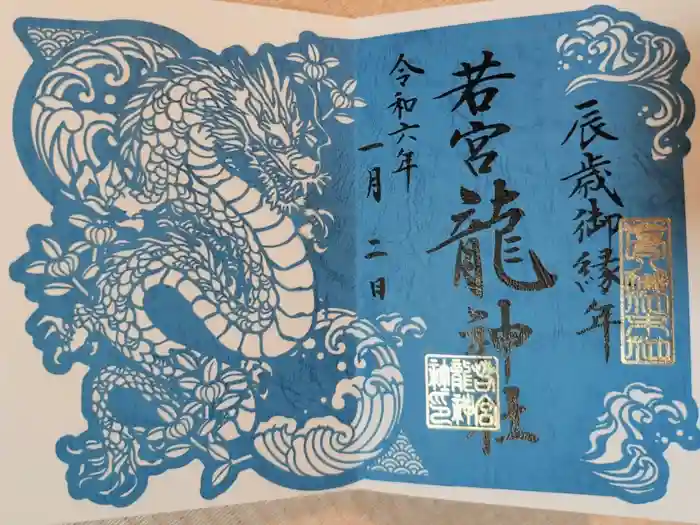 辰歳御縁年
若宮龍神社
令和六年
一月 二日
若宮
龍神
社印